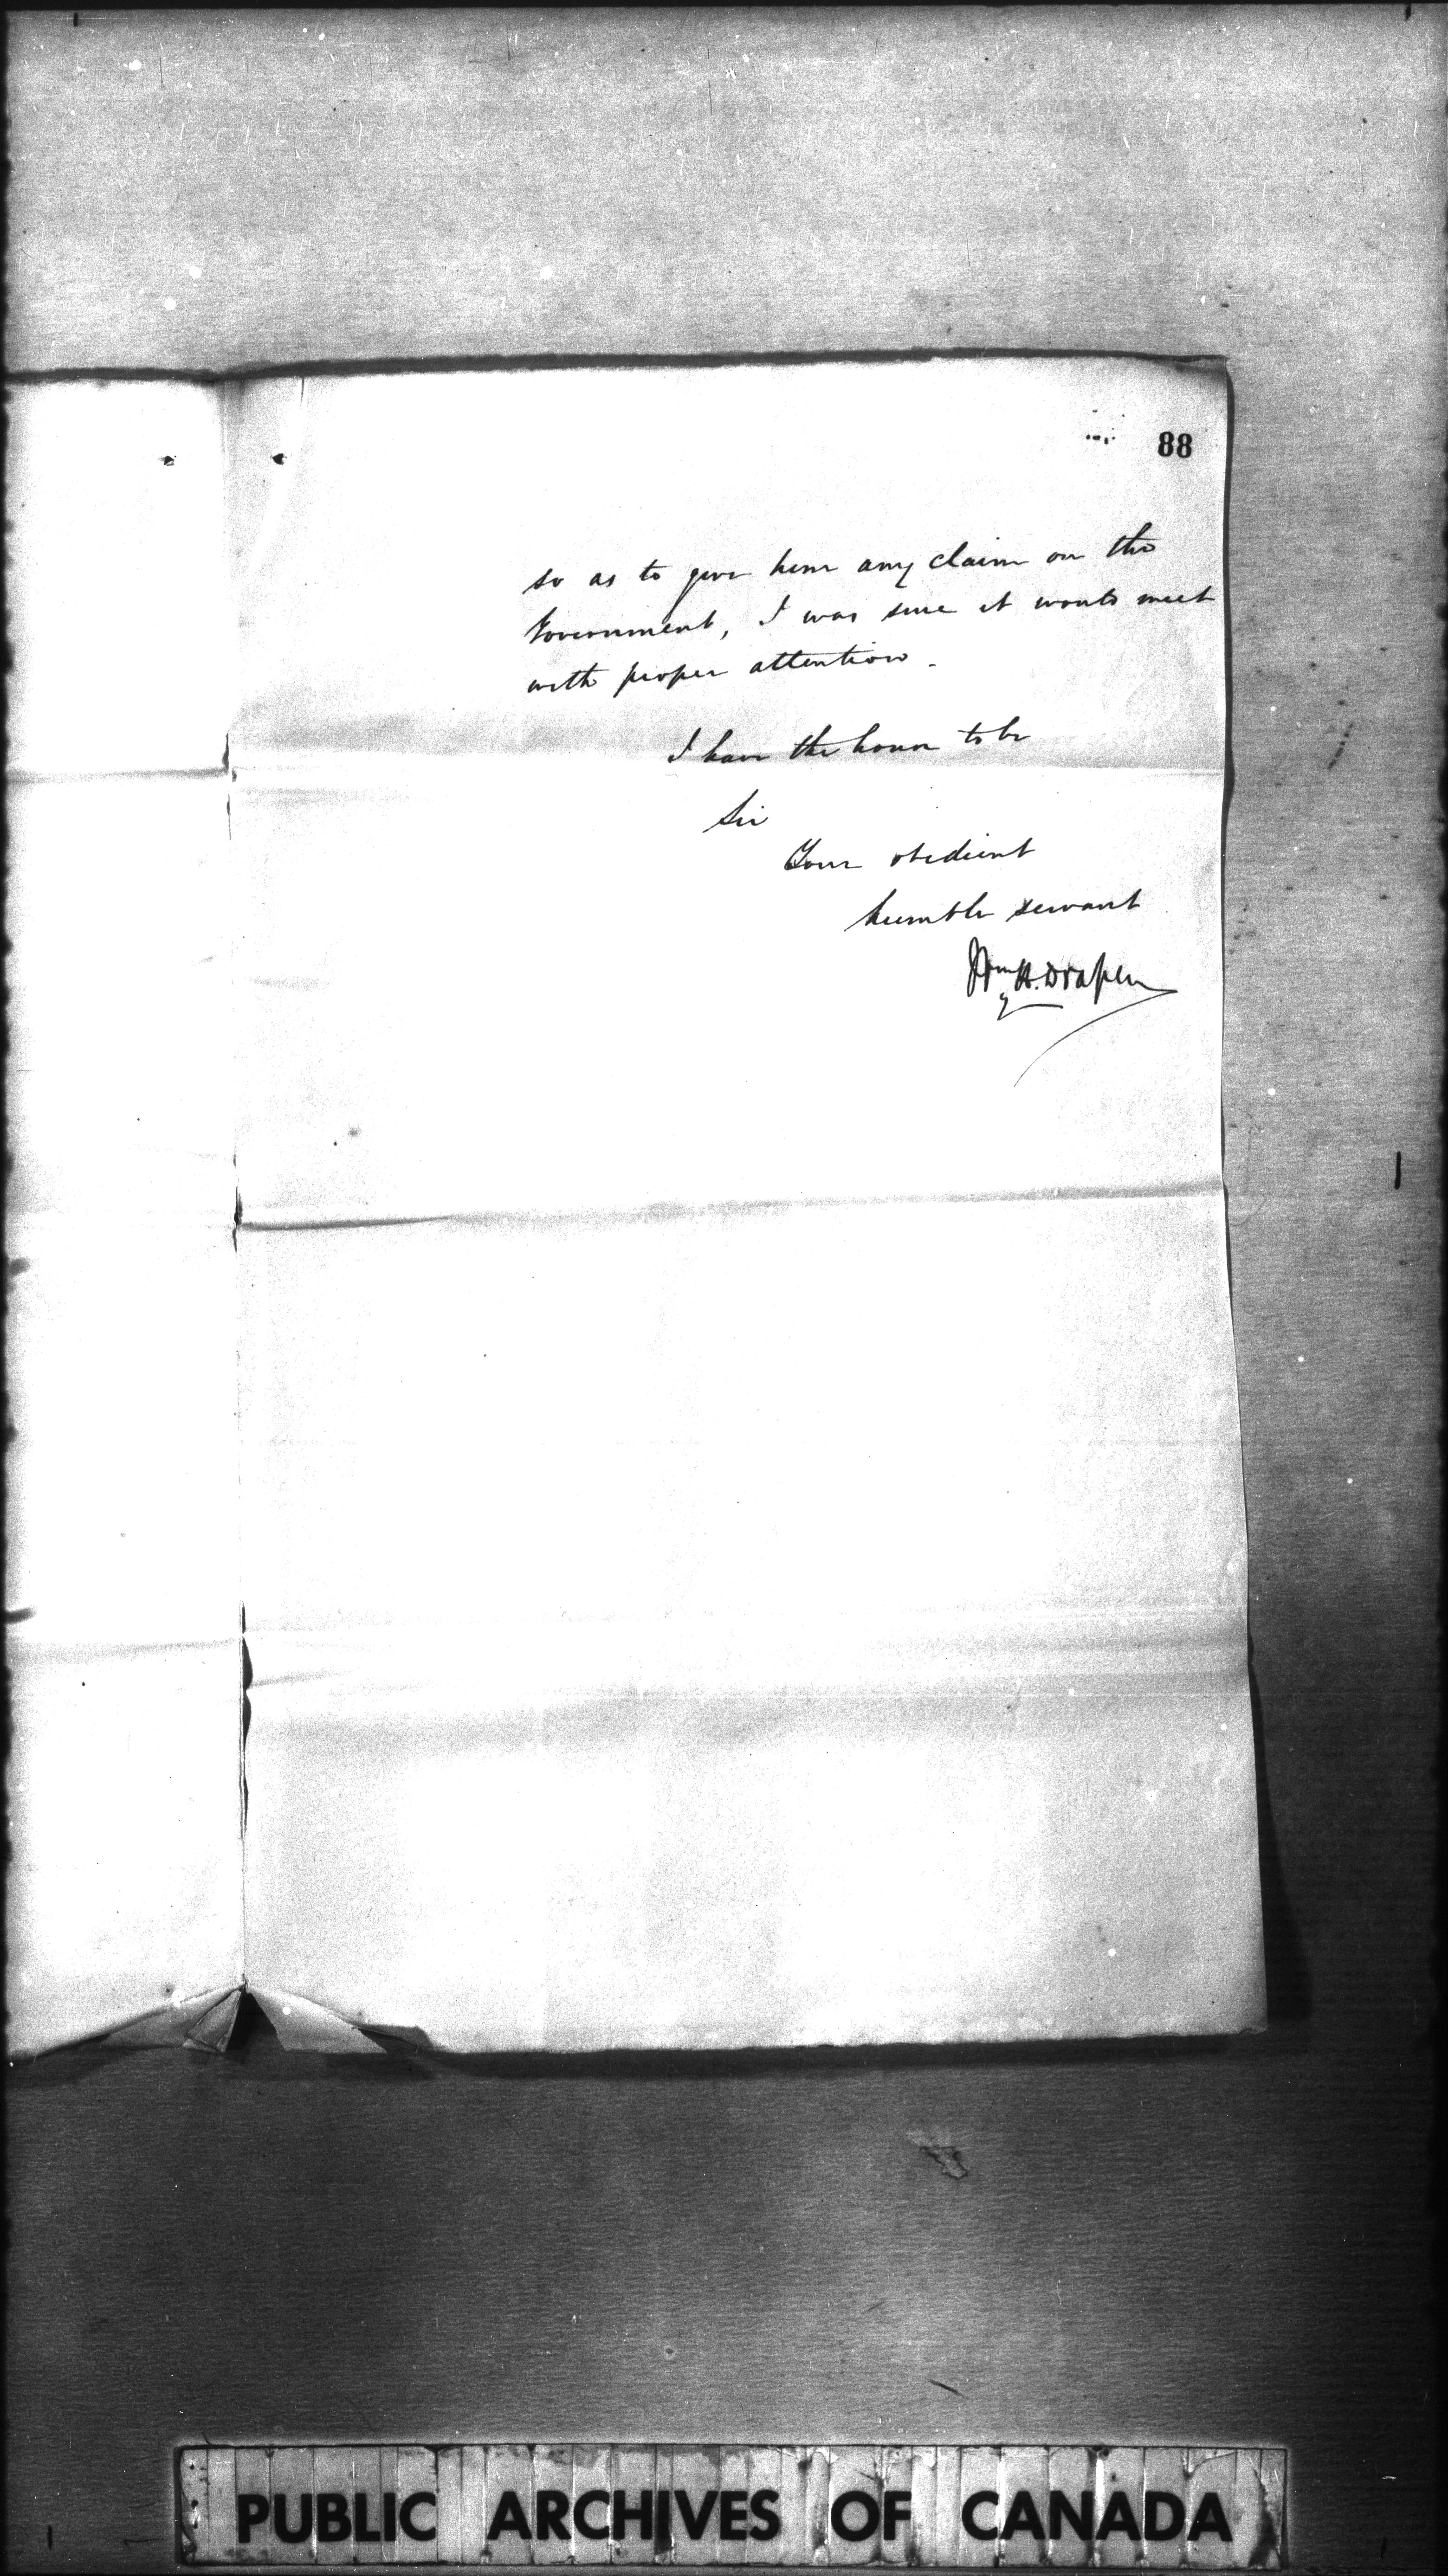 88
so as to give him any claim on the
Government, I was sure it would meet
with proper attention.
I have the honor to be
Sir
Your obedient
humble servant
Wm H. Draper
PUBLIC ARCHIVES OF CANADA